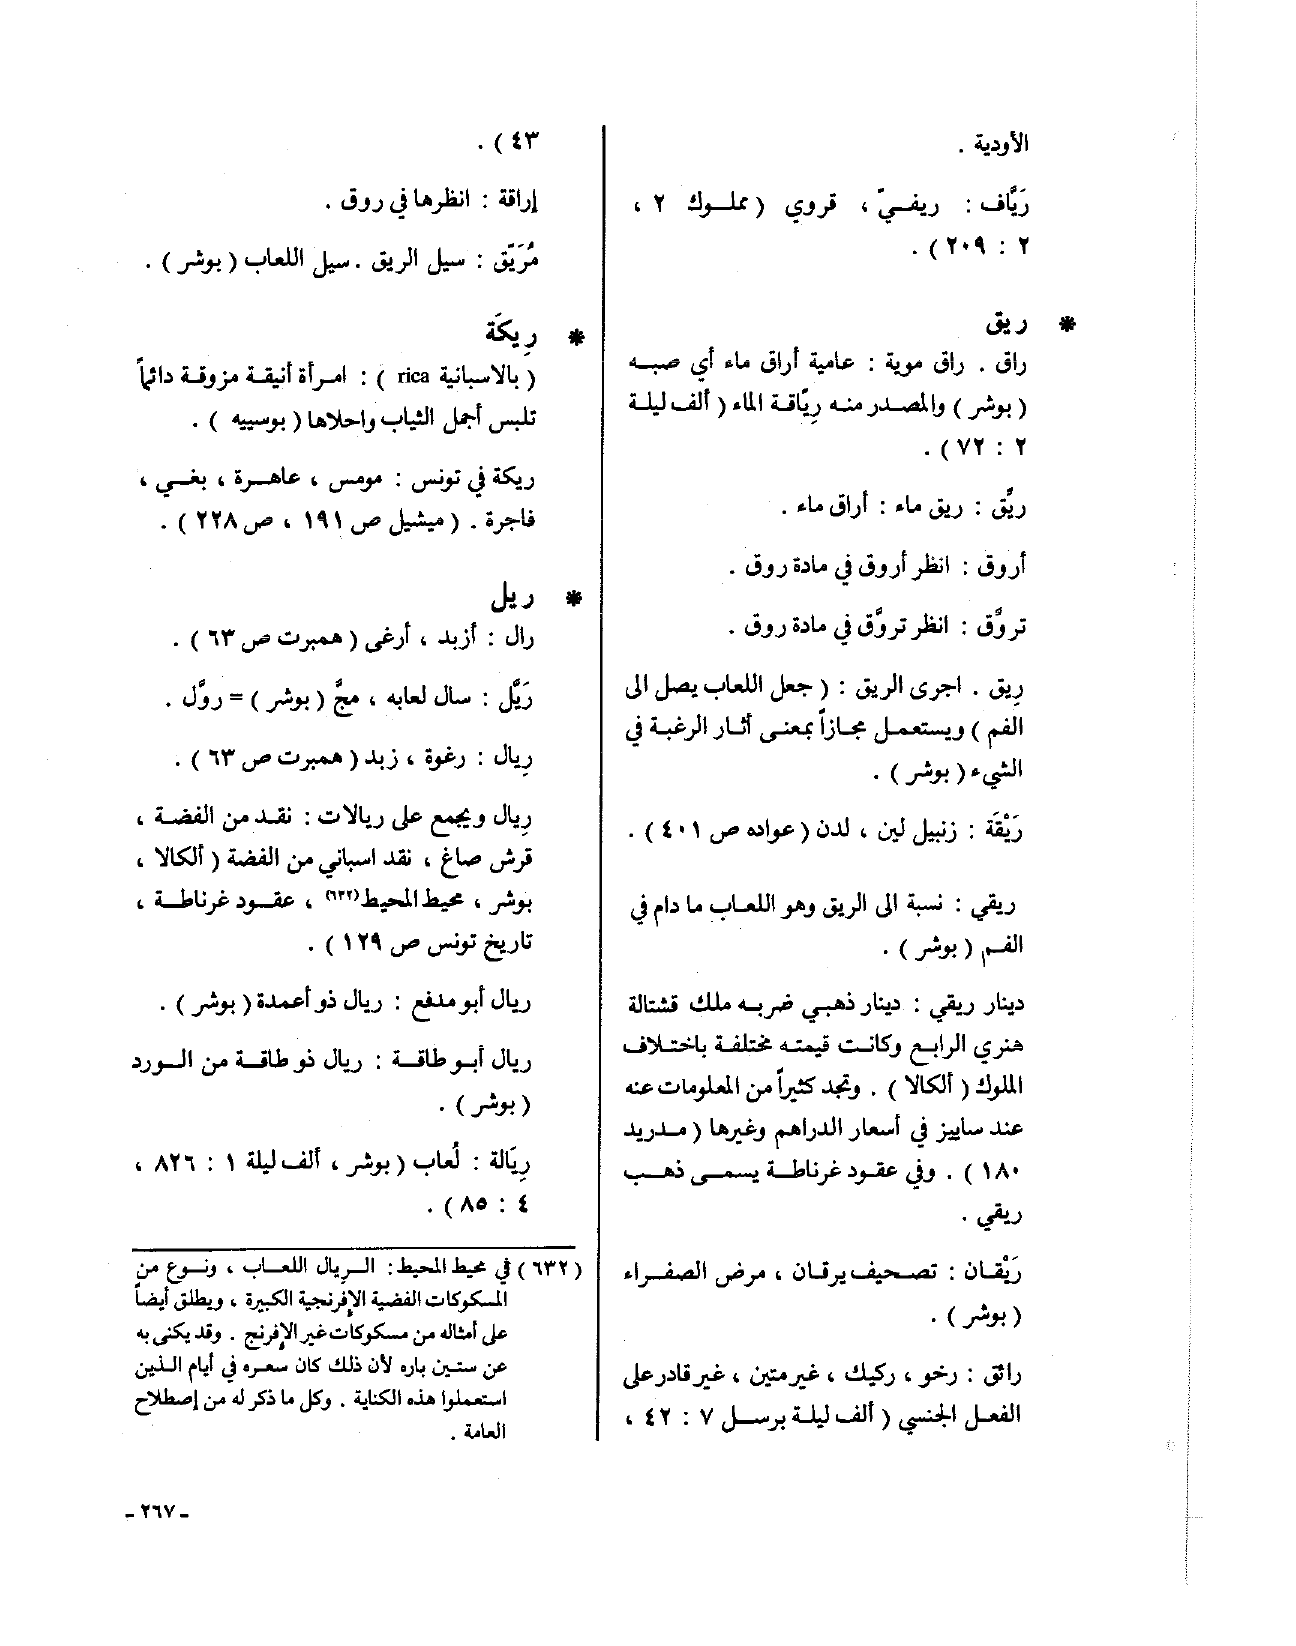 الأودية .
رَيَّاف : ريفيّ ، قروي ( مملوك ٢ ،
٢ : ٢٠٩ ) .
* ريق
راق . راق موية : عامية أراق ماء أي صبه
( بوشر ) والمصدر منه رِيّاقة الماء ( ألف ليلة
٢ : ٧٢ ) .
ريَّق : ريق ماء : أراق ماء .
أروق : انظر أروق في مادة روق .
تروَّق : انظر تروَّق في مادة روق .
رِيق . اجرى الريق : ( جعل اللعاب يصل الى
الفم ) ويستعمل مجازاً بمعنى أثار الرغبة في
الشيء ( بوشر ) .
رَيْقَة : زنبيل لين ، لدن ( عواده ص ٤٠١ ) .
ريقي : نسبة الى الريق وهو اللعاب ما دام في
الفم ( بوشر ) .
دينار ريقي : دينار ذهبي ضربه ملك قشتالة
هنري الرابع وكانت قيمته مختلفة باختلاف
الملوك ( ألكالا ) . وتجد كثيراً من المعلومات عنه
عند ساييز في أسعار الدراهم وغيرها ( مدريد
١٨٠ ) . وفي عقود غرناطة يسمى ذهب
ريقي .
رَيْقان : تصحيف يرقان ، مرض الصفراء
( بوشر ) .
رائق : رخو ، ركيك ، غير متين ، غير قادر على
الفعل الجنسي ( ألف ليلة برسل ٧ : ٤٢ ،
٤٣ ) .
إراقة : انظرها في روق .
مُرَيّق : سيل الريق . سيل اللعاب ( بوشر ) .
* رِيكَة
( بالاسبانية rica ) : امرأة أنيقة مزوقة دائماً
تلبس أجمل الثياب واحلاها ( بوسييه ) .
ريكة في تونس : مومس ، عاهرة ، بغي ،
فاجرة . ( ميشيل ص ١٩١ ، ص ٢٢٨ ) .
* ريل
رال : أزبد ، أرغى ( همبرت ص ٦٣ ) .
رَيَّل : سال لعابه ، مجَّ ( بوشر ) = روَّل .
رِيال : رغوة ، زبد ( همبرت ص ٦٣ ) .
رِيال ويجمع على ريالات : نقد من الفضة ،
قرش صاغ ، نقد اسباني من الفضة ( ألكالا ،
بوشر ، محيط المحيط(٦٣٢) ، عقود غرناطة ،
تاريخ تونس ص ١٢٩ ) .
ريال أبو مدفع : ريال ذو أعمدة ( بوشر ) .
ريال أبو طاقة : ريال ذو طاقة من الورد
( بوشر ) .
رِيَالة : لُعاب ( بوشر ، ألف ليلة ١ : ٨٢٦ ،
٤ : ٨٥ ) .
( ٦٣٢ ) في محيط المحيط : الرِيال اللعاب ، ونوع من
المسكوكات الفضية الإفرنجية الكبيرة ، ويطلق أيضاً
على أمثاله من مسكوكات غير الإفرنج . وقد يكنى به
عن ستين باره لأن ذلك كان سعره في أيام الذين
استعملوا هذه الكناية . وكل ما ذكر له من إصطلاح
العامة .
- ٢٦٧ -